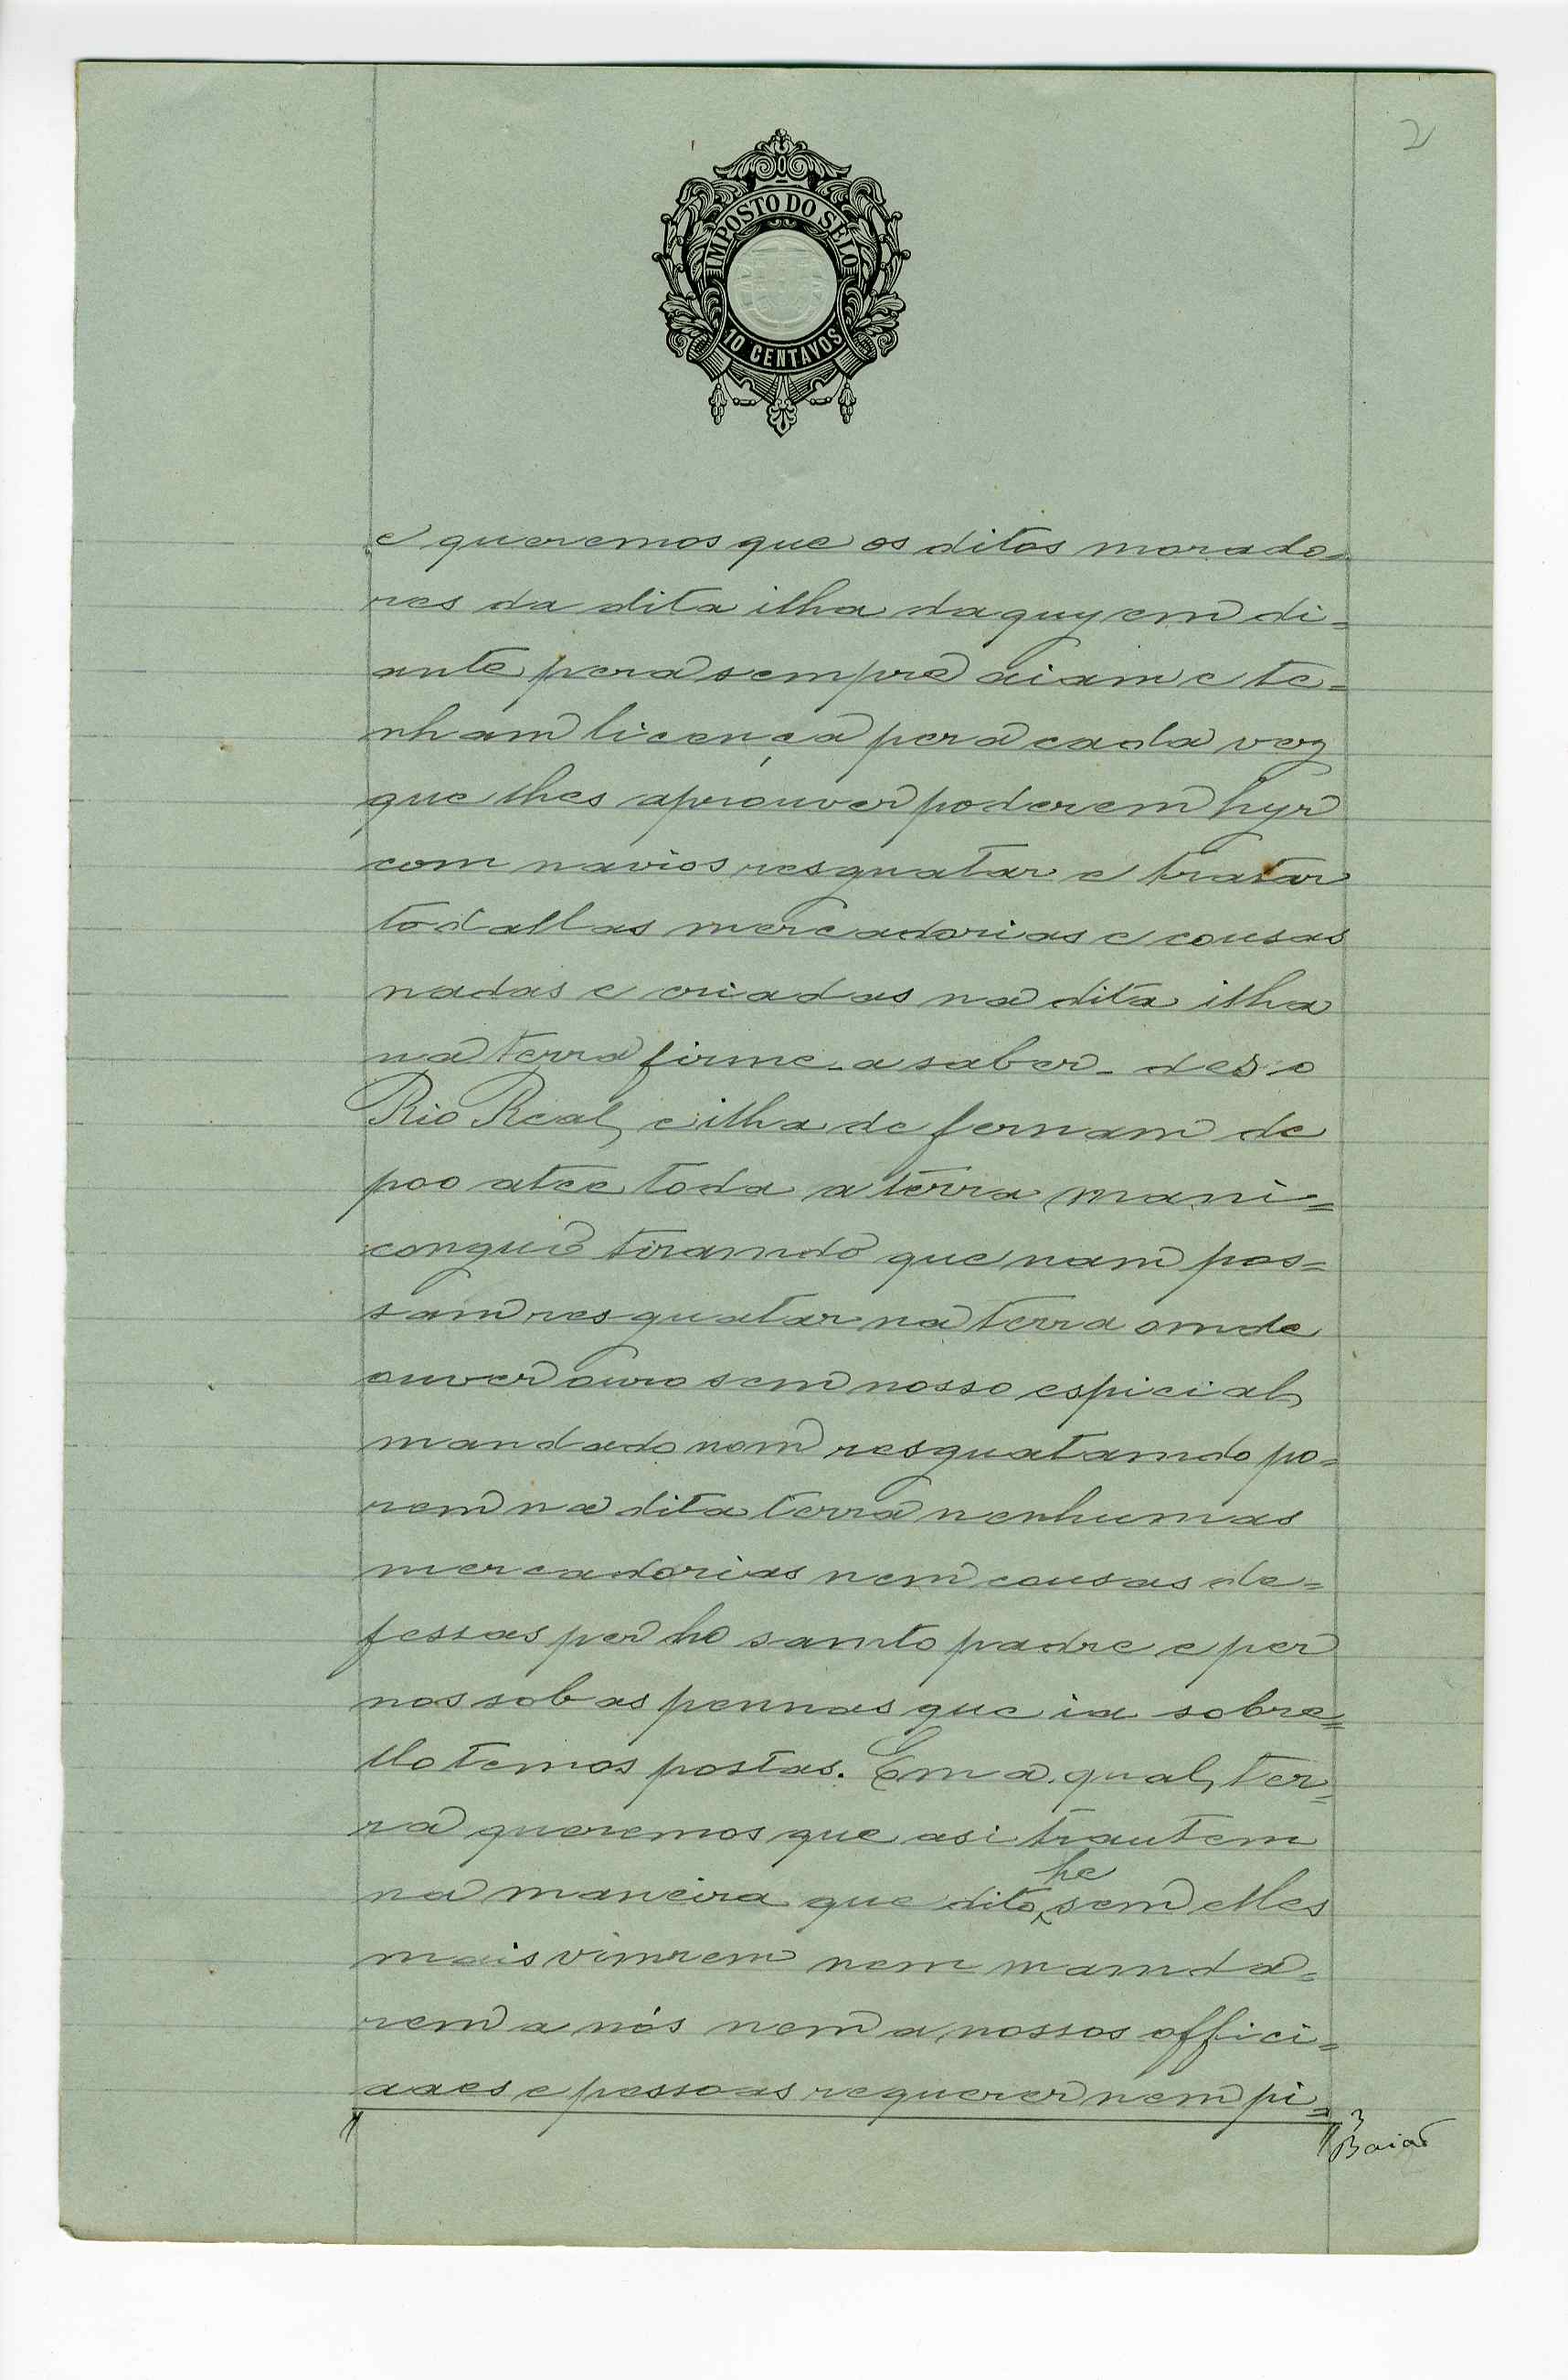 2
IMPOSTO DO SELO
10 CENTAVOS
e queremos que os ditos morado=
res da dita ilha daquy em di=
ante pera sempre aiam e te=
nham licença pera cada vez
que lhes aprouver poderem hyr
com navios resguatar e tratar
todallas mercadorias e cousas
nadas e criadas na dita ilha
na terra firme - a saber - des o
Rio Real, e ilha de fernam de
poo atee toda a terra mani=
conguo tiramdo que nam pos=
sam resguatar na terra omde
ouver ouro sem nosso espicial
mandado nom resguatamdo po=
rem na dita terra nenhumas
mercadorias nem cousas de=
fessas per ho samto padre e per
nos sob as pennas que ia sobre=
llo temos postas. Em a qual, ter=
ra queremos que asi trautem
he
na maneira que dito sem elles
mais vimrem nem mamda=
rem a nós nem a nossos offici=
aaes e pessoas requerer nem pi=
Baião